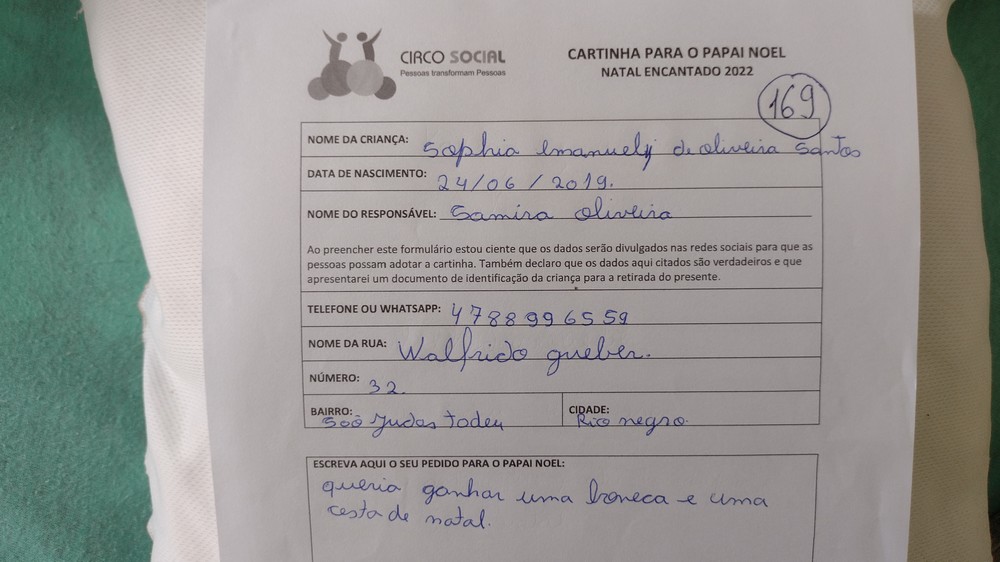 CIRCO SOCIAL
Pessoas transformam Pessoas
CARTINHA PARA O PAPAI NOEL
NATAL ENCANTADO 2022
169
NOME DA CRIANÇA: Sophia Emanuely de oliveira Santos
DATA DE NASCIMENTO: 24/06/2019.
NOME DO RESPONSÁVEL: Samira oliveira
Ao preencher este formulário estou ciente que os dados serão divulgados nas redes sociais para que as
pessoas possam adotar a cartinha. Também declaro que os dados aqui citados são verdadeiros e que
apresentarei um documento de identificação da criança para a retirada do presente.
TELEFONE OU WHATSAPP: 4788996559
NOME DA RUA: Walfrido gueber.
NÚMERO: 32.
BAIRRO: São Judas tadeu
CIDADE: Rio negro.
ESCREVA AQUI O SEU PEDIDO PARA O PAPAI NOEL:
queria ganhar uma boneca e uma
cesta de natal.